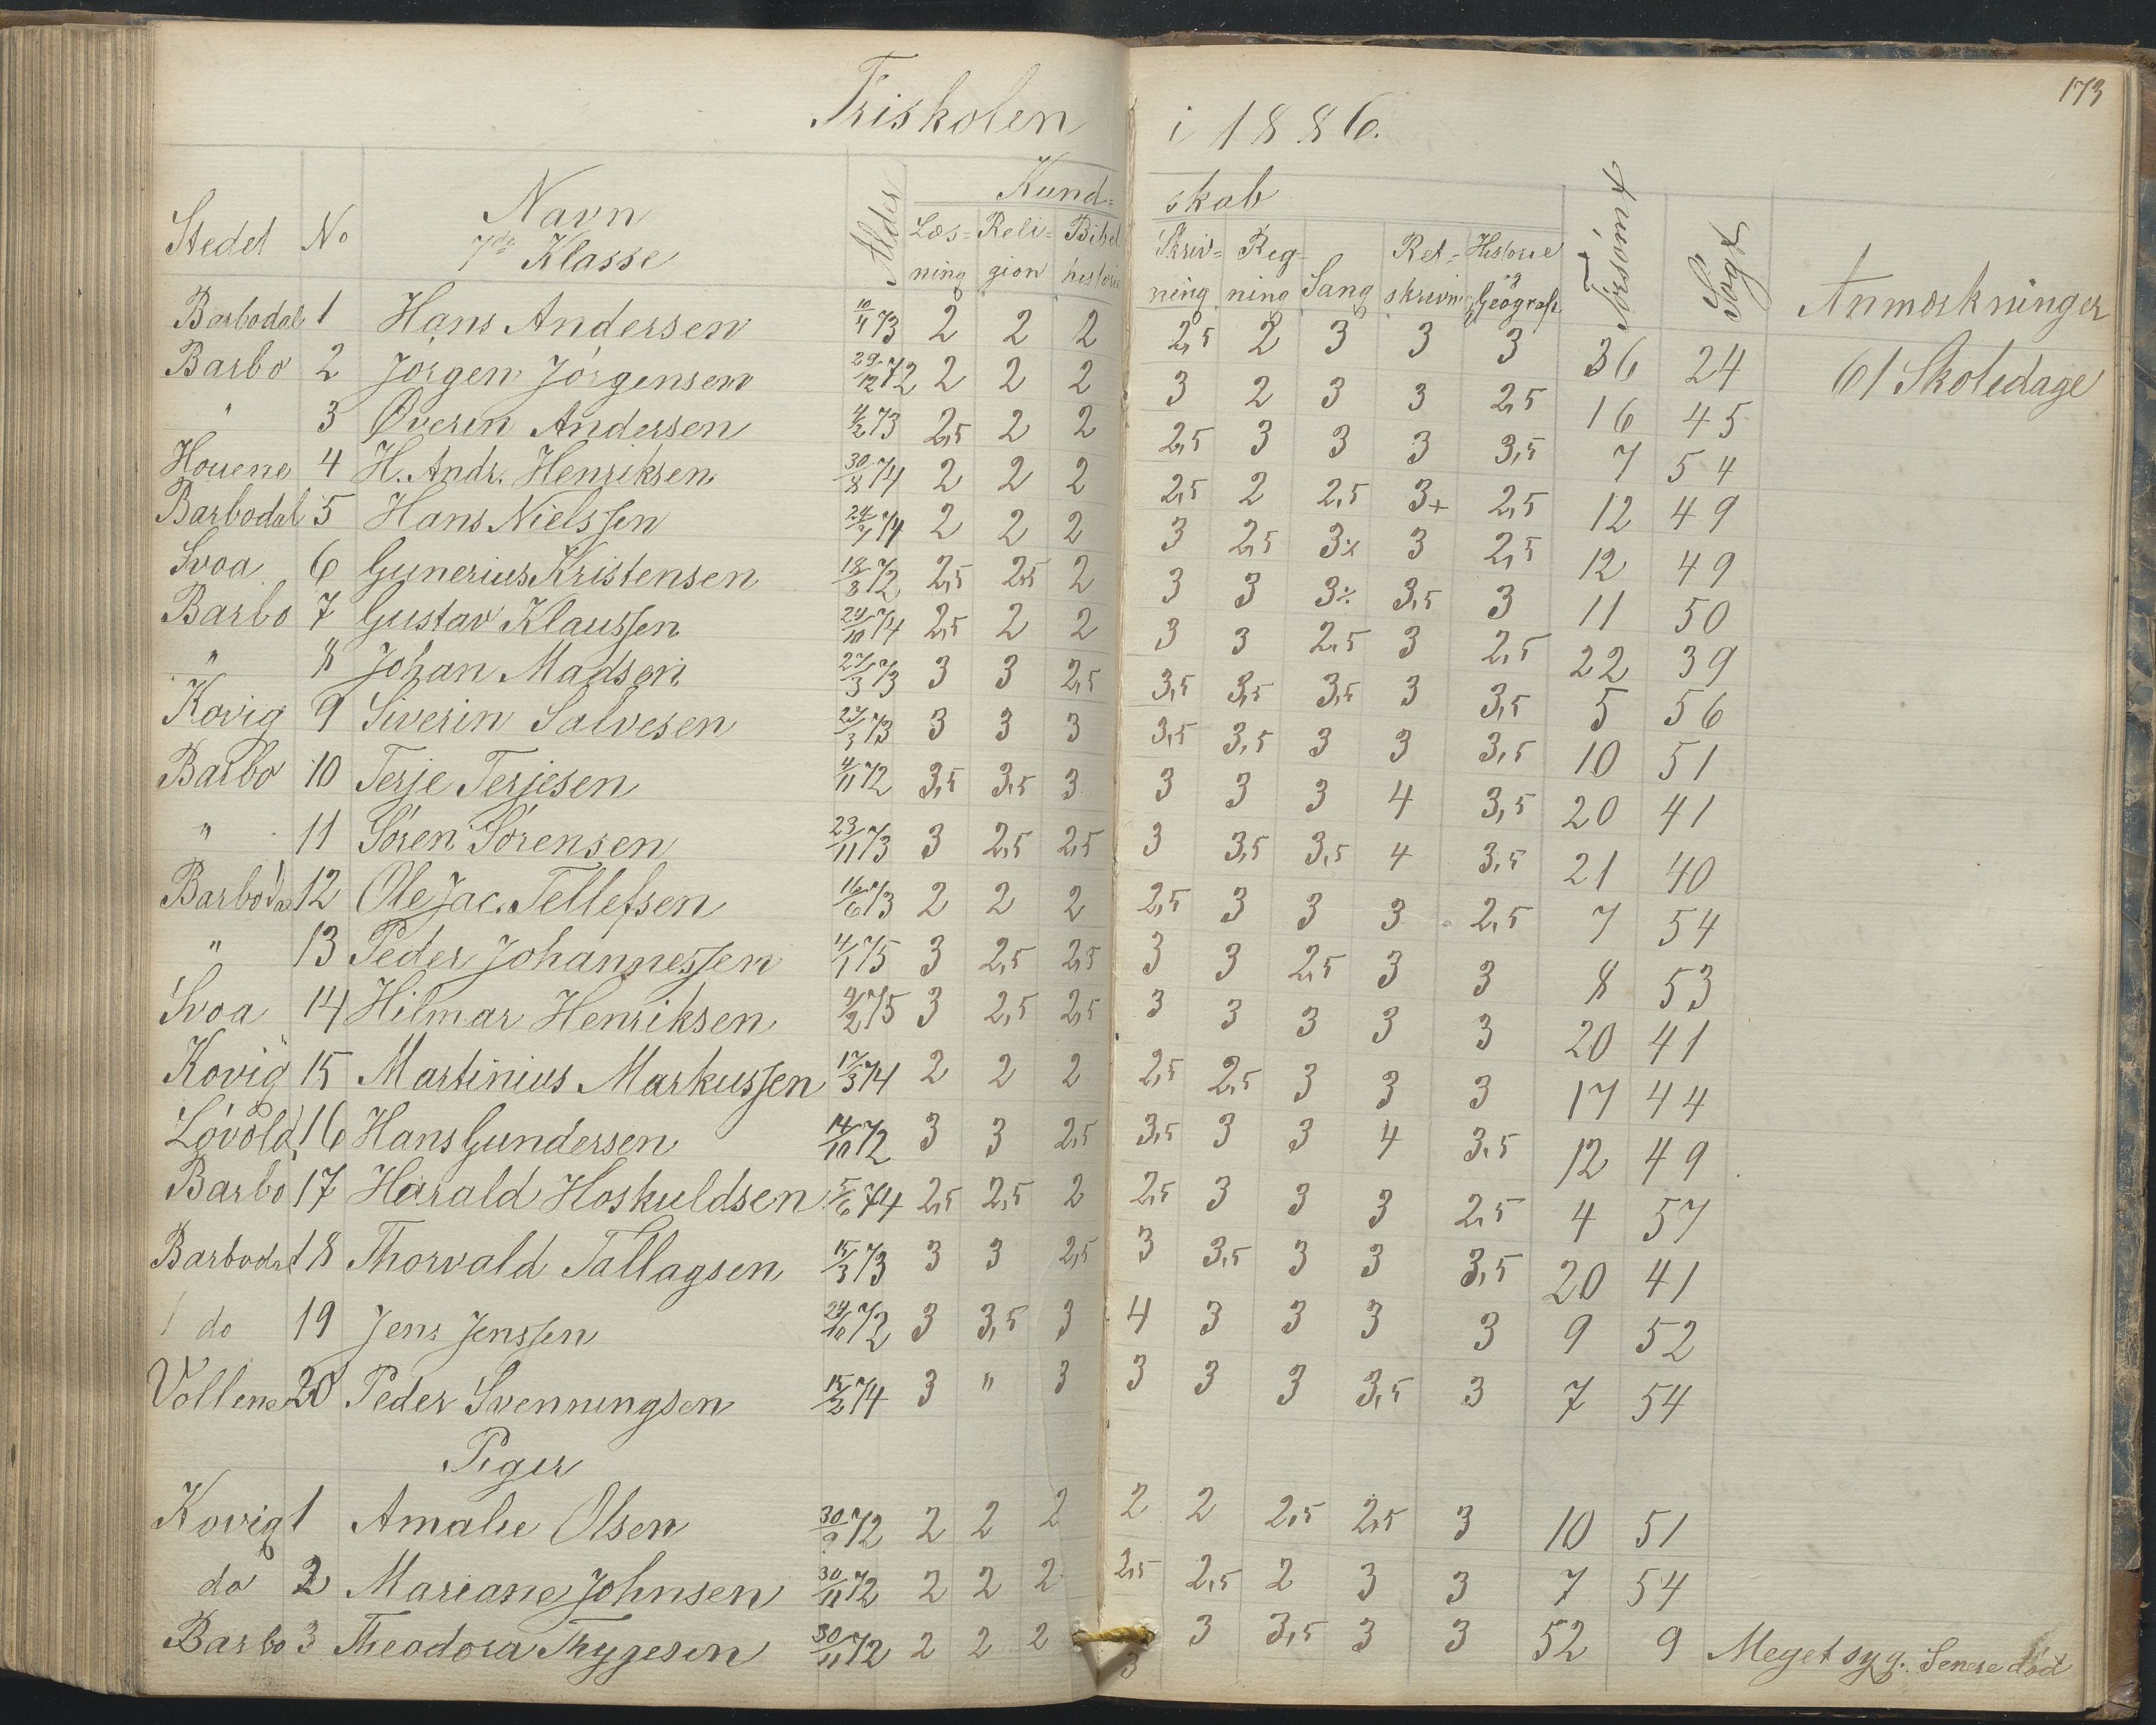 173
Friskolen i 1886.
Stedet No Navn 7de Klasse Alder Kund= skab Forsømt Søgt Anmærkninger
Læs= ning Reli= gion Bibel historie Skriv= ning Reg= ning Sang Ret= skrivn Historie og Geografi
Barbodal 1 Hans Andersen 10/4 73 2 2 2 2,5 2 3 3 3 36 24 61 Skoledage
Barbo 2 Jørgen Jørgensen 29/12 72 2 2 2 3 2 3 3 2,5 16 45
" 3 Øverin Andersen 4/2 73 2,5 2 2 2,5 3 3 3 3,5 7 54
Houene 4 H. Andr. Henriksen 30/8 74 2 2 2 2,5 2 2,5 3+ 2,5 12 49
Barbodal 5 Hans Nielssen 24/7 74 2 2 2 3 2,5 3% 3 2,5 12 49
Svoa 6 Gunerius Kristensen 18/8 72 2,5 2,5 2 3 3 3% 3,5 3 11 50
Barbo 7 Gustav Klaussen 24/10 74 2,5 2 2 3 3 2,5 3 2,5 22 39
" 8 Johan Madsen 27/3 73 3 3 2,5 3,5 3,5 3,5 3 3,5 5 56
Kovig 9 Siverin Salvesen 27/3 73 3 3 3 3,5 3,5 3 3 3,5 10 51
Barbo 10 Terje Terjesen 4/11 72 3,5 3,5 3 3 3 3 4 3,5 20 41
" 11 Søren Sørensen 23/11 73 3 2,5 2,5 3 3,5 3,5 4 3,5 21 40
Barbodal 12 Ole Jac. Tellefsen 16/6 73 2 2 2 2,5 3 3 3 2,5 7 54
" 13 Peder Johannessen 4/1 75 3 2,5 2,5 3 3 2,5 3 3 8 53
Svoa 14 Hilmar Henriksen 9/2 75 3 2,5 2,5 3 3 3 3 3 20 41
Kovig 15 Martinius Markussen 17/3 74 2 2 2 2,5 2,5 3 3 3 17 44
Løvold 16 Hans Gundersen 14/10 72 3 3 2,5 3,5 3 3 4 3,5 12 49
Barbo 17 Harald Hoskuldsen 5/6 74 2,5 2,5 2 2,5 3 3 3 2,5 4 57
Barbodal 18 Thorvald Tallagsen 15/3 73 3 3 2,5 3 3,5 3 3 3,5 20 41
do 19 Jens Jenssen 24/10 72 3 3,5 3 4 3 3 3 3 9 52
Vollene 20 Peder Svenningsen 15/2 74 3 " 3 3 3 3 3,5 3 7 54
Piger
Kovig 1 Amalie Olsen 30/9 72 2 2 2 2 2 2,5 2,5 3 10 51
do 2 Mariane Johnsen 30/11 72 2 2 2 2,5 2,5 2 3 3 7 54
Barbo 3 Theodora Thygesen 30/11 72 2 2 2 3 3 3,5 3 3 52 9 Meget syg. Senere død